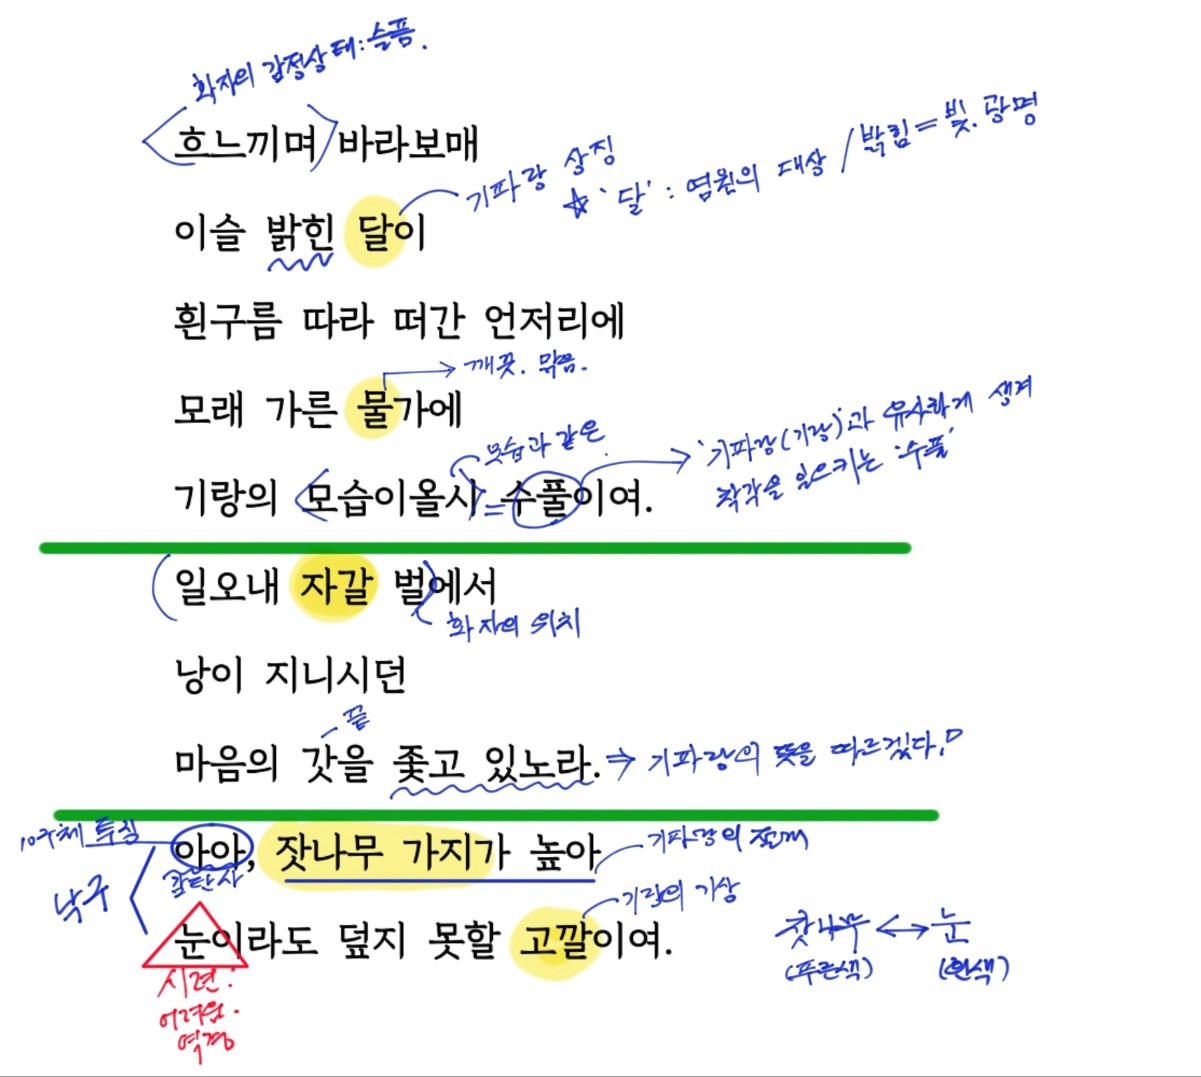 화자의 감정상태:슬픔.
흐느끼며 바라보매
기파랑 상징
☆ '달' : 염원의 대상 / 밝힘 = 빛. 광명
이슬 밝힌 달이
흰구름 따라 떠간 언저리에
깨끗. 맑음.
모래 가른 물가에
모습과 같은
'기파랑(기랑)'과 유사하게 생겨
착각을 일으키는 '수풀'
기랑의 모습이올시 = 수풀이여.
일오내 자갈 벌에서
화자의 위치
낭이 지니시던
끝
마음의 갓을 좇고 있노라. ⇒ 기파랑의 뜻을 따르겠다.
10구체 특징
아아, 잣나무 가지가 높아
기파랑의 절개
감탄사
낙구
기랑의 기상
눈이라도 덮지 못할 고깔이여.
잣나무 ↔ 눈
(푸른색) (흰색)
시련.
어려움.
역경